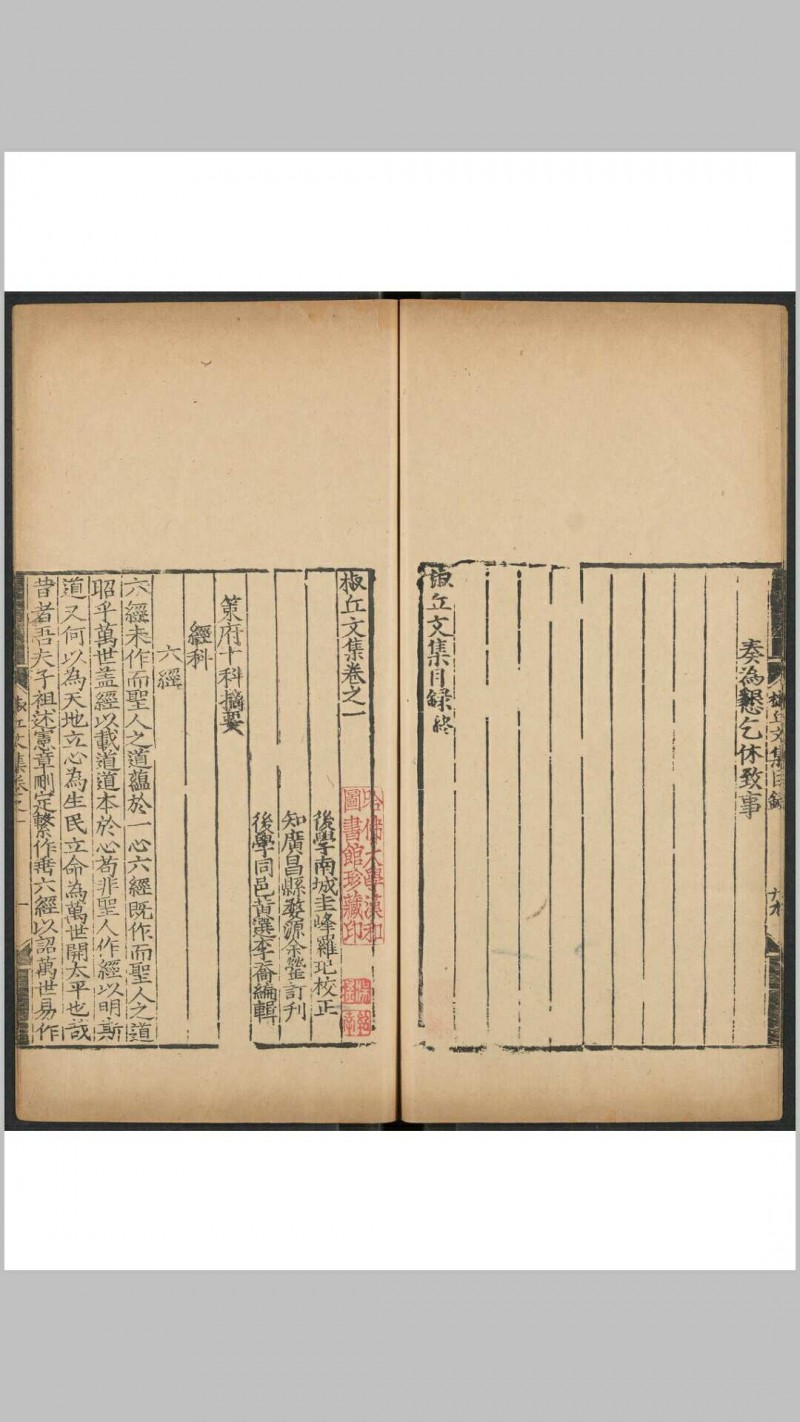 奏為懇乞休致事
椒丘文集目錄終
椒丘文集目錄
椒丘文集卷之一
哈佛大學漢和
圖書館珍藏印
後學南城圭峰羅玘校正
知廣昌縣婺源余罃訂刋
後學同邑黃選李喬編輯
策府十科摘要
經科
六經
六經未作而聖人之道蘊於一心六經既作而聖人之道
昭乎萬世盖經以載道道本於心苟非聖人作經以明斯
道又何以為天地立心為生民立命為萬世開太平也哉
昔者吾夫子祖述憲章刪定繫作垂六經以詔萬世易作
椒丘文集卷之一
一